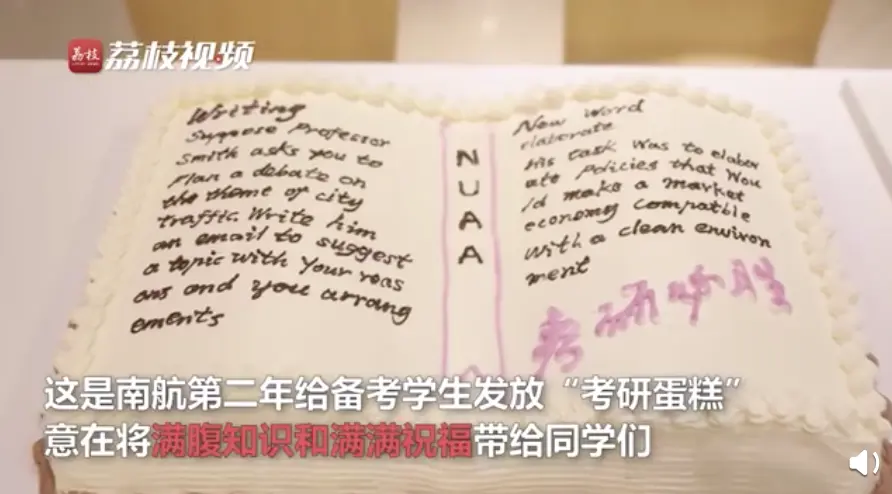 荔枝视频
Writing
Suppose Professor
Smith asks you to
Plan a debate on
the theme of city
traffic. Write him
an email to suggest
a topic with Your reas
ons and you arrang
ements
NUAA
New Word
elaborate
his task was to elabor
ate Policies that Wou
ld make a market
economy compatble
With a clean environ
ment
考研必胜
这是南航第二年给备考学生发放“考研蛋糕”
意在将满腹知识和满满祝福带给同学们